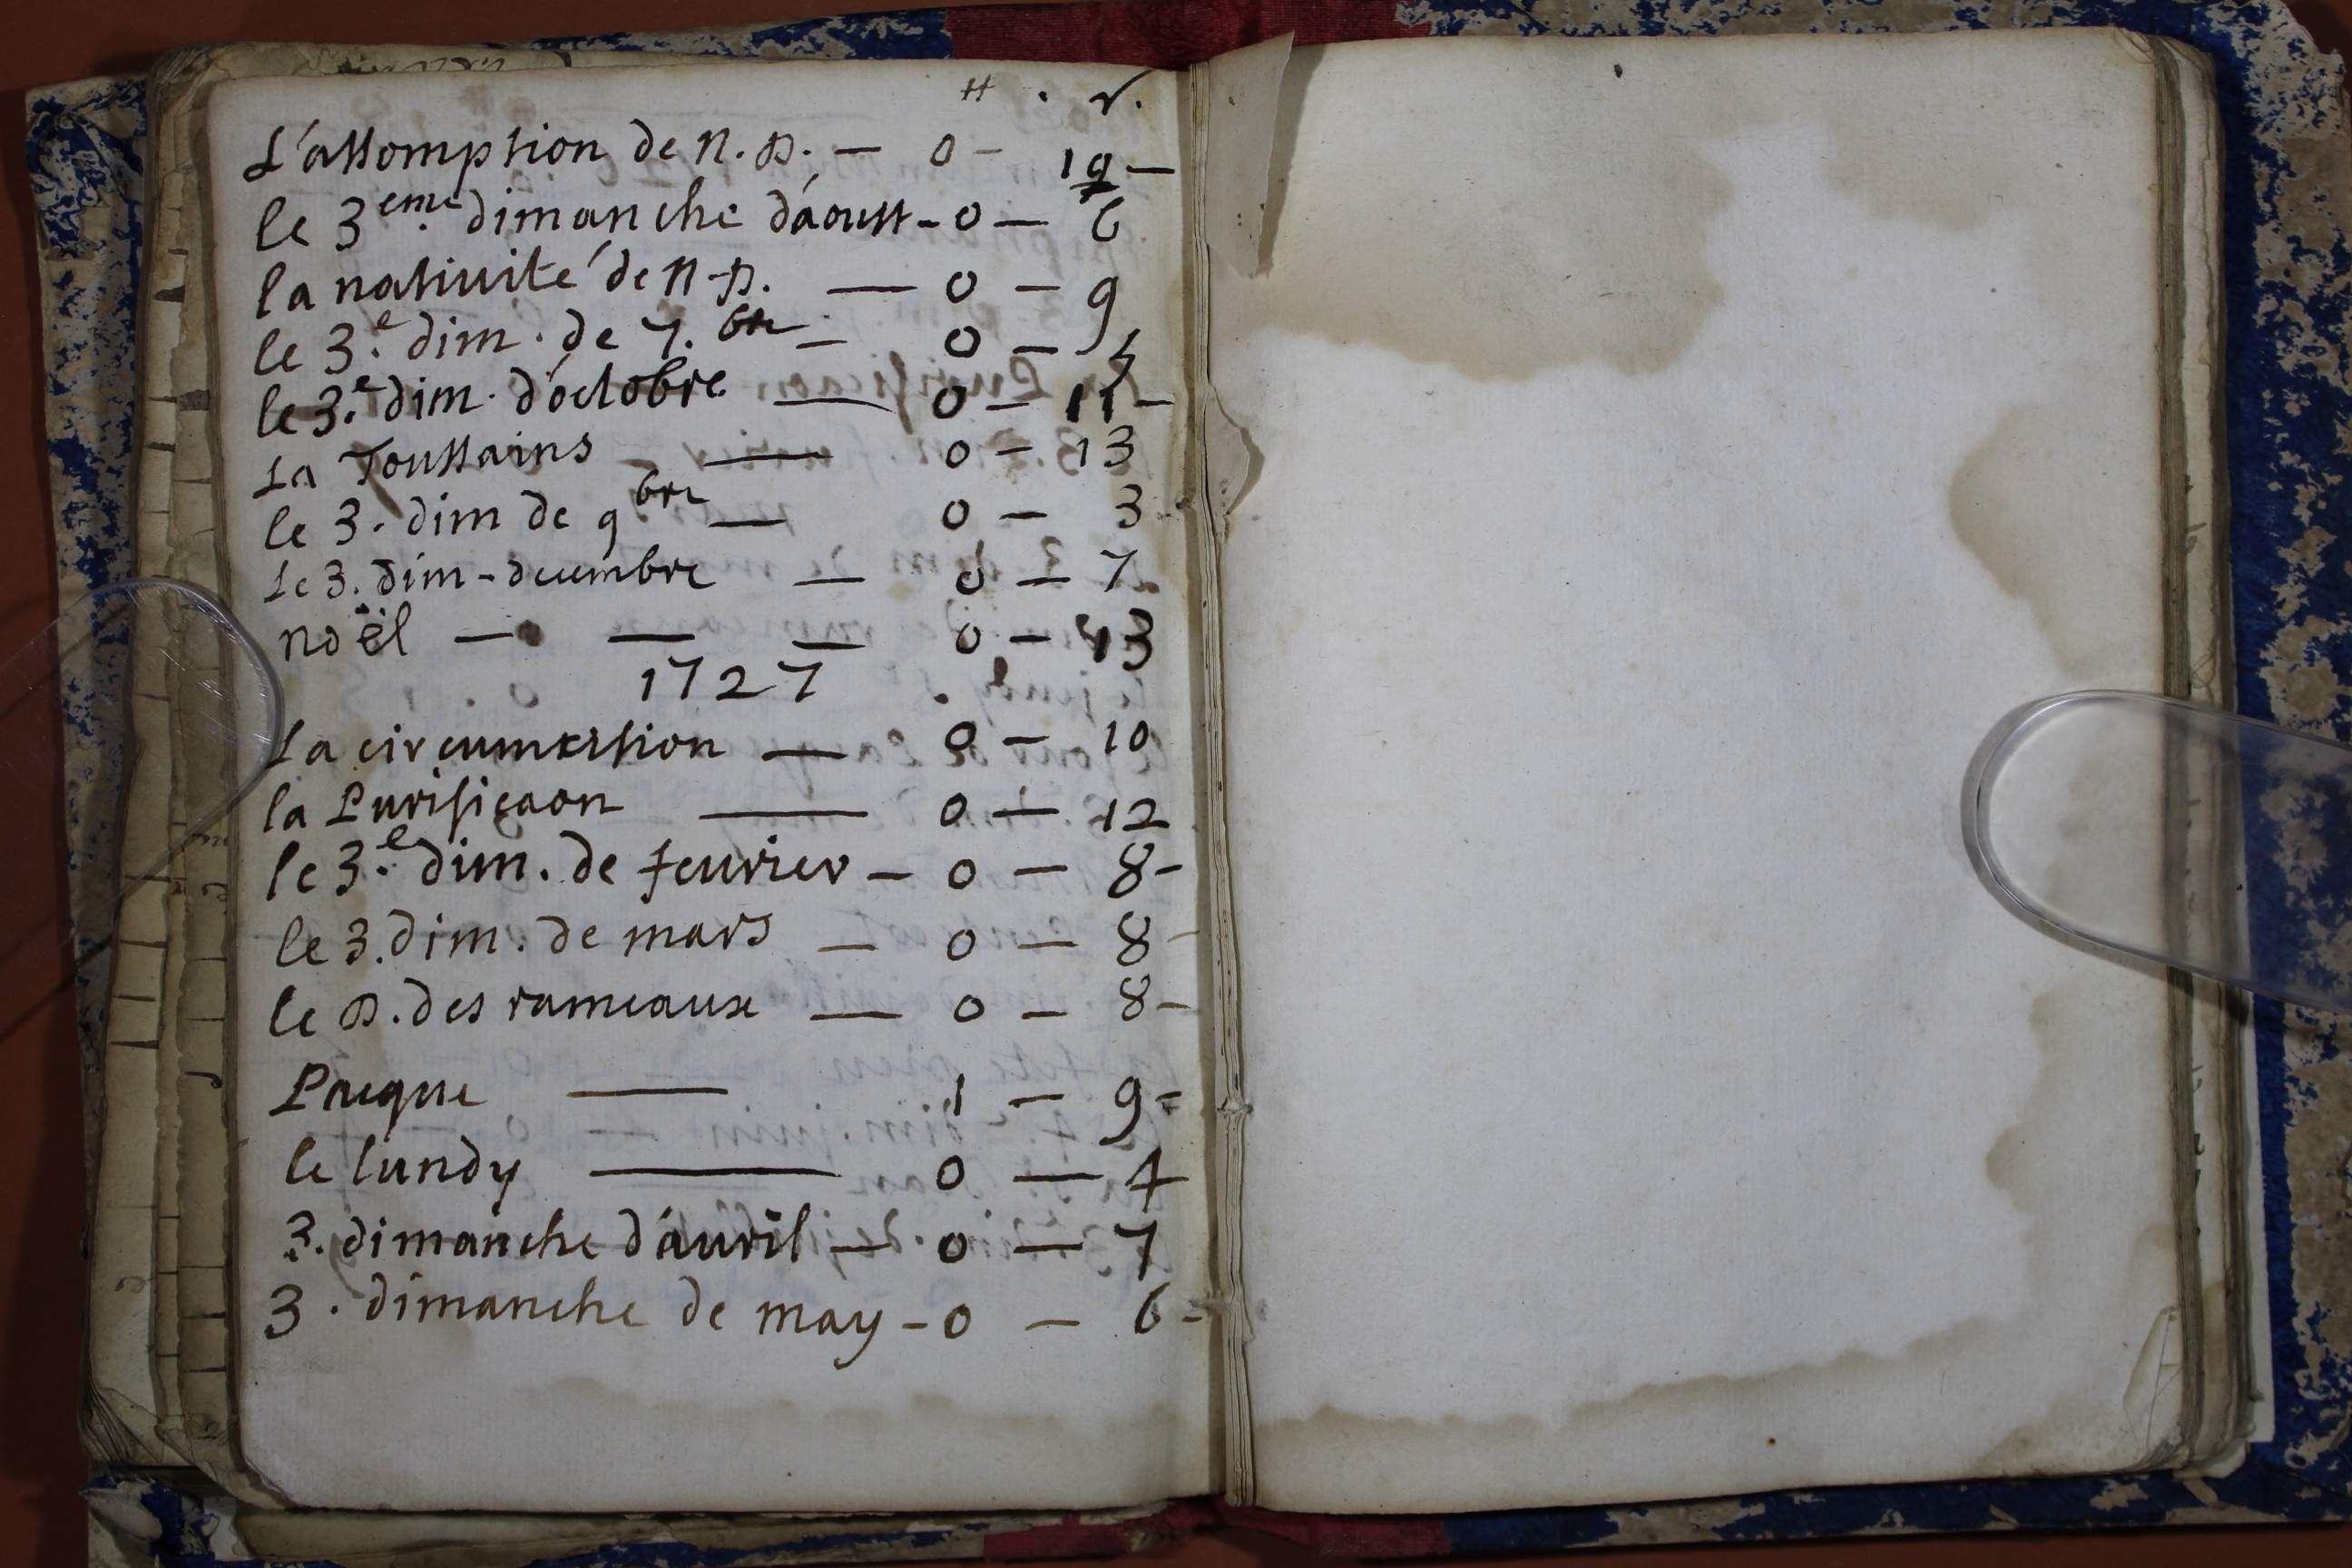 # . s.
L'assomption de N. D. — 0 — 19 —
le 3eme dimanche d'aoust - 0 — 6
la natiuité de N-D. — 0 — 9
le 3.e dim. de 7.bre — 0 — 5
le 3.e dim. d'octobre — 0 — 11 —
La Toussains — 0 — 13
le 3. dim de 9bre — 0 — 3
Le 3. dim - decembre — 0 — 7
noël — — — 0 — 13
1727
La circumcision — 0 — 10
la Purificaon — 0 — 12
le 3.e dim. de feurier — 0 — 8 -
le 3. dim. de mars — 0 — 8 -
le D. des rameaux — 0 — 8 -
Pacque — 1 — 9 =
le lundy — 0 — 4
3. dimanche d'auril — 0 — 7
3. dimanche de may - 0 — 6 -